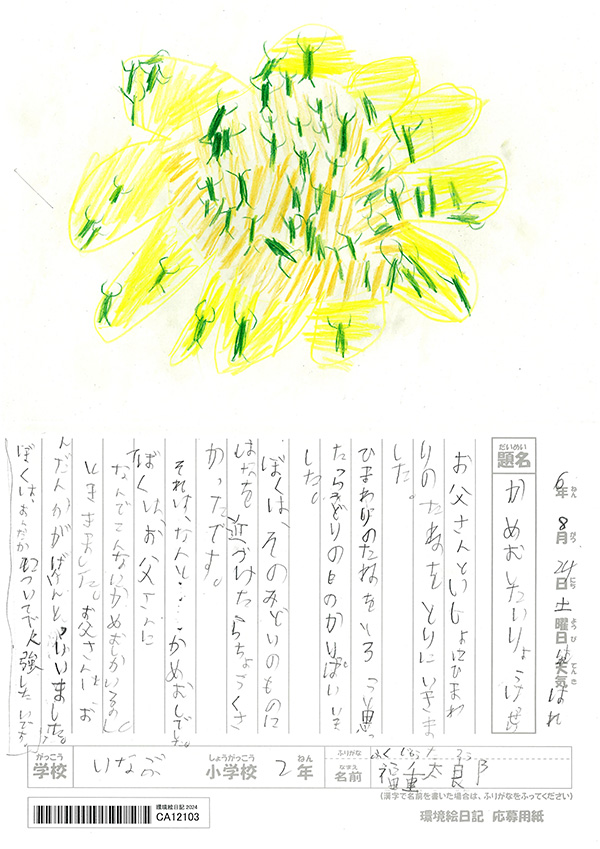 6年 8月 24日 土曜日 天気 はれ
ねん がつ にち ようび てんき
だいめい
題名
かめむしたいりょう
お父さんといっしょにひまわ
りのたねをとりにいきま
した。
ひまわりのたねをとろうと思っ
たらみどりのものがいっぱいいま
した。
ぼくは、そのみどりのものに
はなを近づけたらちょうくさ
かったです。
それは、なんと…かめむしでした。
ぼくは、お父さんに
なんでこんなにかめむしがいるの
とききました。お父さんは、お
んだんかがげんいんといいました。
ぼくは、おんだんかについてべん強したいです。
がっこう
学校
いなぶ
しょうがっこう
小学校
2年
ねん
ふりがな
なまえ
名前
福重太良郎
(漢字で名前を書いた場合は、ふりがなをふってください)
環境絵日記 2024
CA12103
環境絵日記 応募用紙